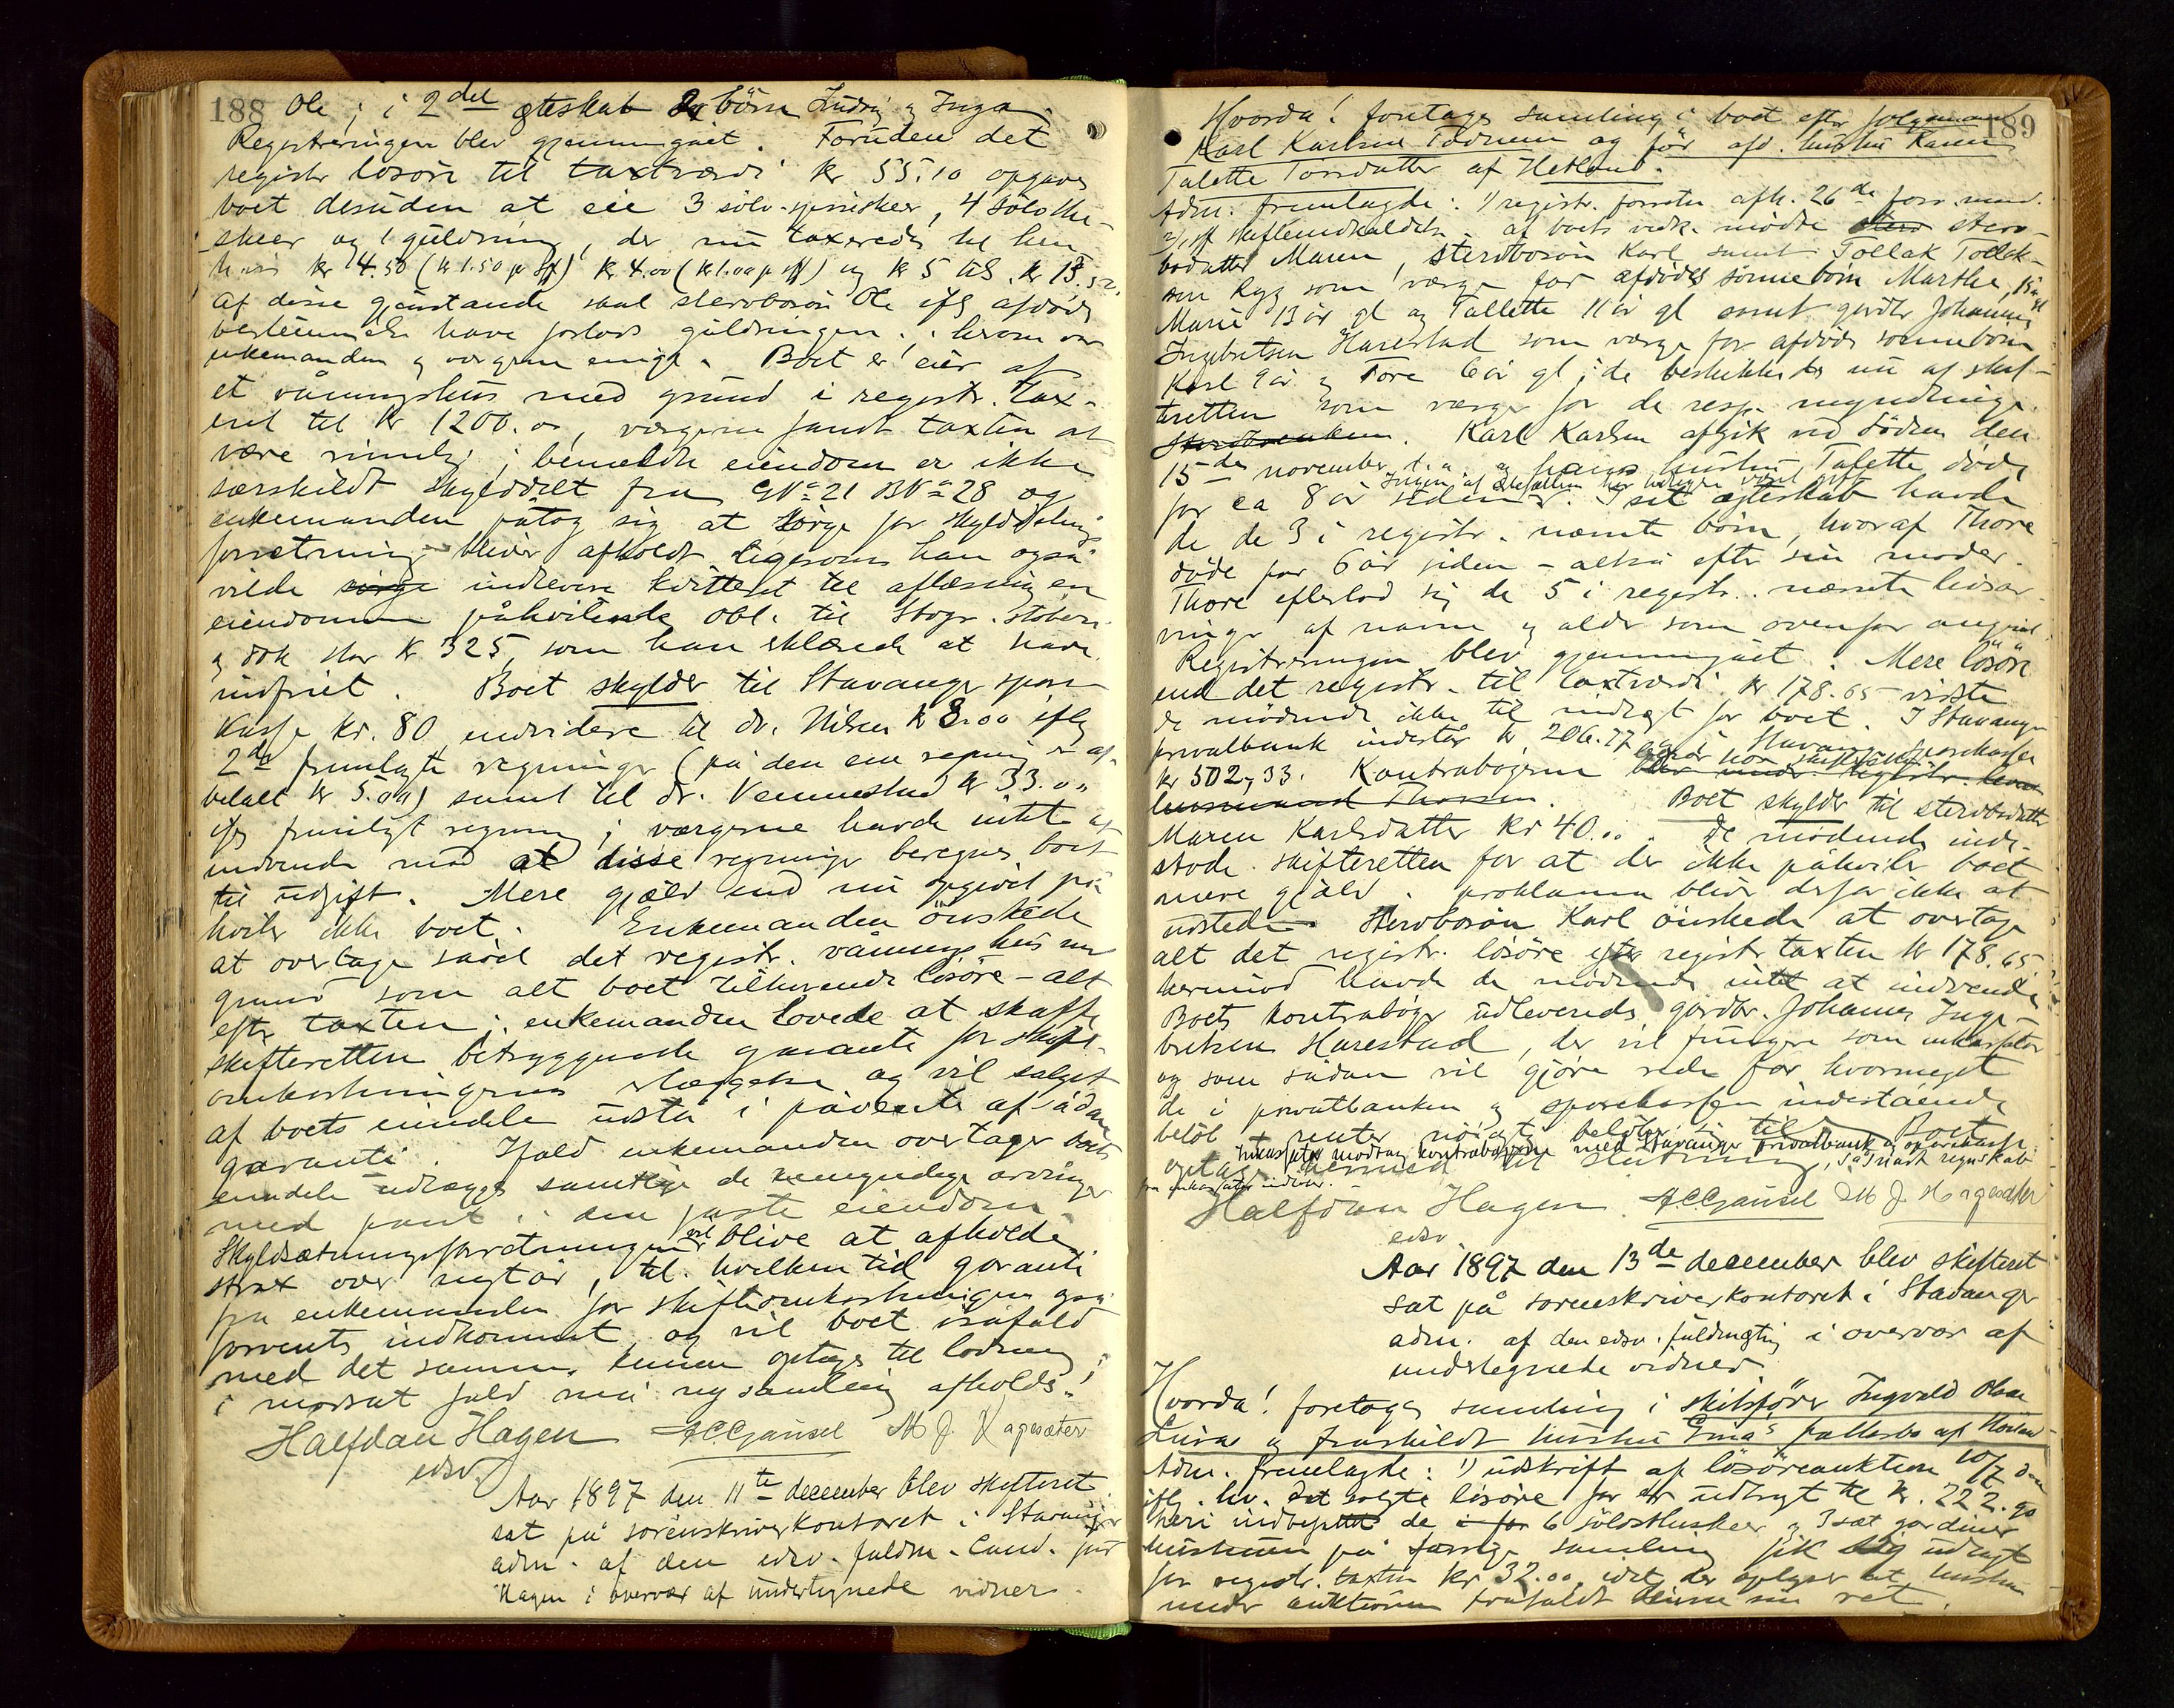 188 Ole; i 2det ægteskab 2 børn Ludvig og Inga.
Registreringen blev gjennemgået. Foruden det
registr løsøre til taxtværdi kr 55.10 opgaves
boet desuden at eie 3 sølv-spiseskeer, 4 sølvthe-
skeer og 1 guldring, der nu taxeredes til hen-
hvis kr 4.50 (kr 1.50 pr st) kr 4.00 (kr 1.00 pr st) og kr 5 tils. kr 13.50.
Af disse gjenstande skal stervbosøn Ole iflg afdødes
bestemmelse have forlods guldringen; herom var
enkemanden og værgerne enige. Boet er eier af
et våningshus med grund i registr. tax-
eret til kr 1200.00, værgerne fandt taxten at
være rimelig; bemeldte eiendom er ikke
særskildt skylddelt fra GNo 21 BNo 28 og
enkemanden påtog sig at sørge for skylddelings-
forretning blir afholdt ligesom han også
vilde sørge indlevere kvitteret til aflæsning en
eiendommen påhvilende obl. til
stor kr 325, som han erklærede at have
indfriet. Boet skylder til Stavanger spare-
kasse kr. 80 endvidere til dr. Nilsen kr 8.00 iflg
2de fremlagte regninger (på den ene regning er af-
betalt kr 5.00) samt til dr. Vennestad kr 33.00
iflg fremlagt regning; værgerne havde intet at
indvende mod at disse regninger beregnes boet
til udgift. Mere gjæld end nu opgivet på-
hviler ikke boet. Enkemanden ønskede
at overtage såvel det registr. våningshus m
grund som alt boet tilhørende løsøre – alt
efter taxten; enkemanden lovede at skaffe
skifteretten betryggende garanti for skifte-
omkostningernes erlæggelse og vil salget
af boets eiendele udstå i påvente af sådan
garanti. Ifald enkemanden overtager boets
eiendele udlægges samtlige de umyndige arvinger
med pant i den faste eiendom.
Skyldsætningsforretningen vil blive at afholde
strax over nytår, til hvilken tid garanti
fra enkemanden for skifteomkostningen også
forventes indkommet, og vil boet isåfald
med det samme kunne optages til lodning;
i modsat fald må ny samling afholdes.
Halfdan Hagen ACGjausel M J. Hagesæter
edsv.
Aar 1897 den 11te december blev skifteret
sat på sorenskriverkontoret i Stavanger
adm. af den edsv. fuldm. Cand. jur
Hagen i overvær af undertegnede vidner.
189
Hvorda! foretages samling i boet efter
Karl Karlsen Todnem og før afd. hustru Karen
Talette Torsdatter af Hetland.
Adm. fremlagde: 1) registr. forretn afh. 26de forr. mnd.
2) skifteindkaldelse. af boets vedk. mødte sterv-
bodatter Maren, stervbosøn Karl samt Tollak Tollak-
sen Ryg som værge for afdødes sønnebørn Marthe, 15 år gl
Marie 13 år gl og Tallette 11 år gl samt gårdbr Johannes
Ingebretsen Harestad som værge for afdødes sønnebørn
Karl 9 år og Tore 6 år gl; de beskikkedes nu af skif-
teretten som værger for de resp. myndlinge.
Karl Karlsen afgik ved døden den
15de november d.a. og hans hustru Talette døde
Ingen af ægtefællen har tidligere været gift
for ca 8 år siden. I sit ægteskab havde
de de 3 i registr. nævnte børn, hvoraf Thore
døde for 6 år siden – altså efter sin moder.
Thore efterlod sig de 5 i registr. nævnte livsar-
vinger af navn og alder som ovenfor angivet.
Registreringen blev gjennemgået. Mere løsøre
end det registr. til taxtværdi kr 178.65 vidste
de mødende ikke til indtægt for boet. I Stavanger
privatbank indestår kr 206.77 og i Stavanger sparekasse
kr 502,33. Kontrabøgerne beror hos skifteretten
Boet skylder til stervbodatter
Maren Karlsdatter kr 40.00. De mødende inde-
stode skifteretten for at der ikke påhviler boet
mere gjæld. proklama blir derfor ikke at
udstede. Stervbosøn Karl ønskede at overtage
alt det registr. løsøre efter registr taxten kr 178.65
hermod havde de mødende intet at indvende
Boets kontrabøger udleveredes gårdbr. Johannes Inge-
bretsen Harestad, der vil fungere som inkassator
og som sådan vil gjøre rede for hvormeget
de i privatbanken og sparekassen indestående
beløb + renter nøiagtig beløber sig til. Boet
Inkassator modtog kontrabøgerne med Stavanger Privatbank og sparekasse.
optages hermed til slutning, så snart regnskab
fra inkassator indløber.
Halfdan Hagen ACGjausel M J. Hagesæter
edsv.
Aar 1897 den 13de december blev skifteret
sat på sorenskriverkontoret i Stavanger
adm. af den edsv. fuldmægtig i overvær af
undertegnede vidner
Hvorda! foretages samling i skibsfører Ingvald Olsen
Lura og fraskildt hustrus fællesbo af
Adm. fremlagde: 1) udskrift af løsøreauktion 10/7 d.a.
iflg. hv. det solgte løsøre for er udbragt til kr. 222.90
heri indbefattet de i for 6 sølvtheskeer og 3 sæt gardiner
hustruen på forrige samling fik sig udlagt
for registr. taxten kr 32.00, idet der oplyses at hustruen
under auktionen frafaldt denne sin ret.